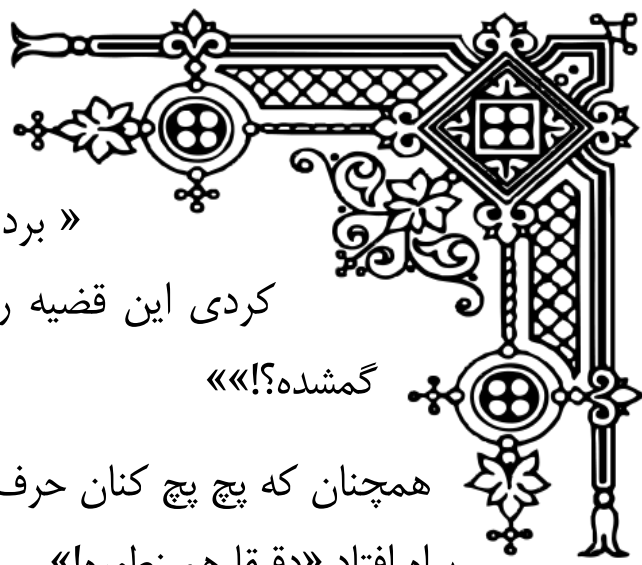 « برد
کردی این قضیه ر
گمشده؟!»»
همچنان که پچ پچ کنان حرف
براه افتاد «دقیقا همینطوره!»